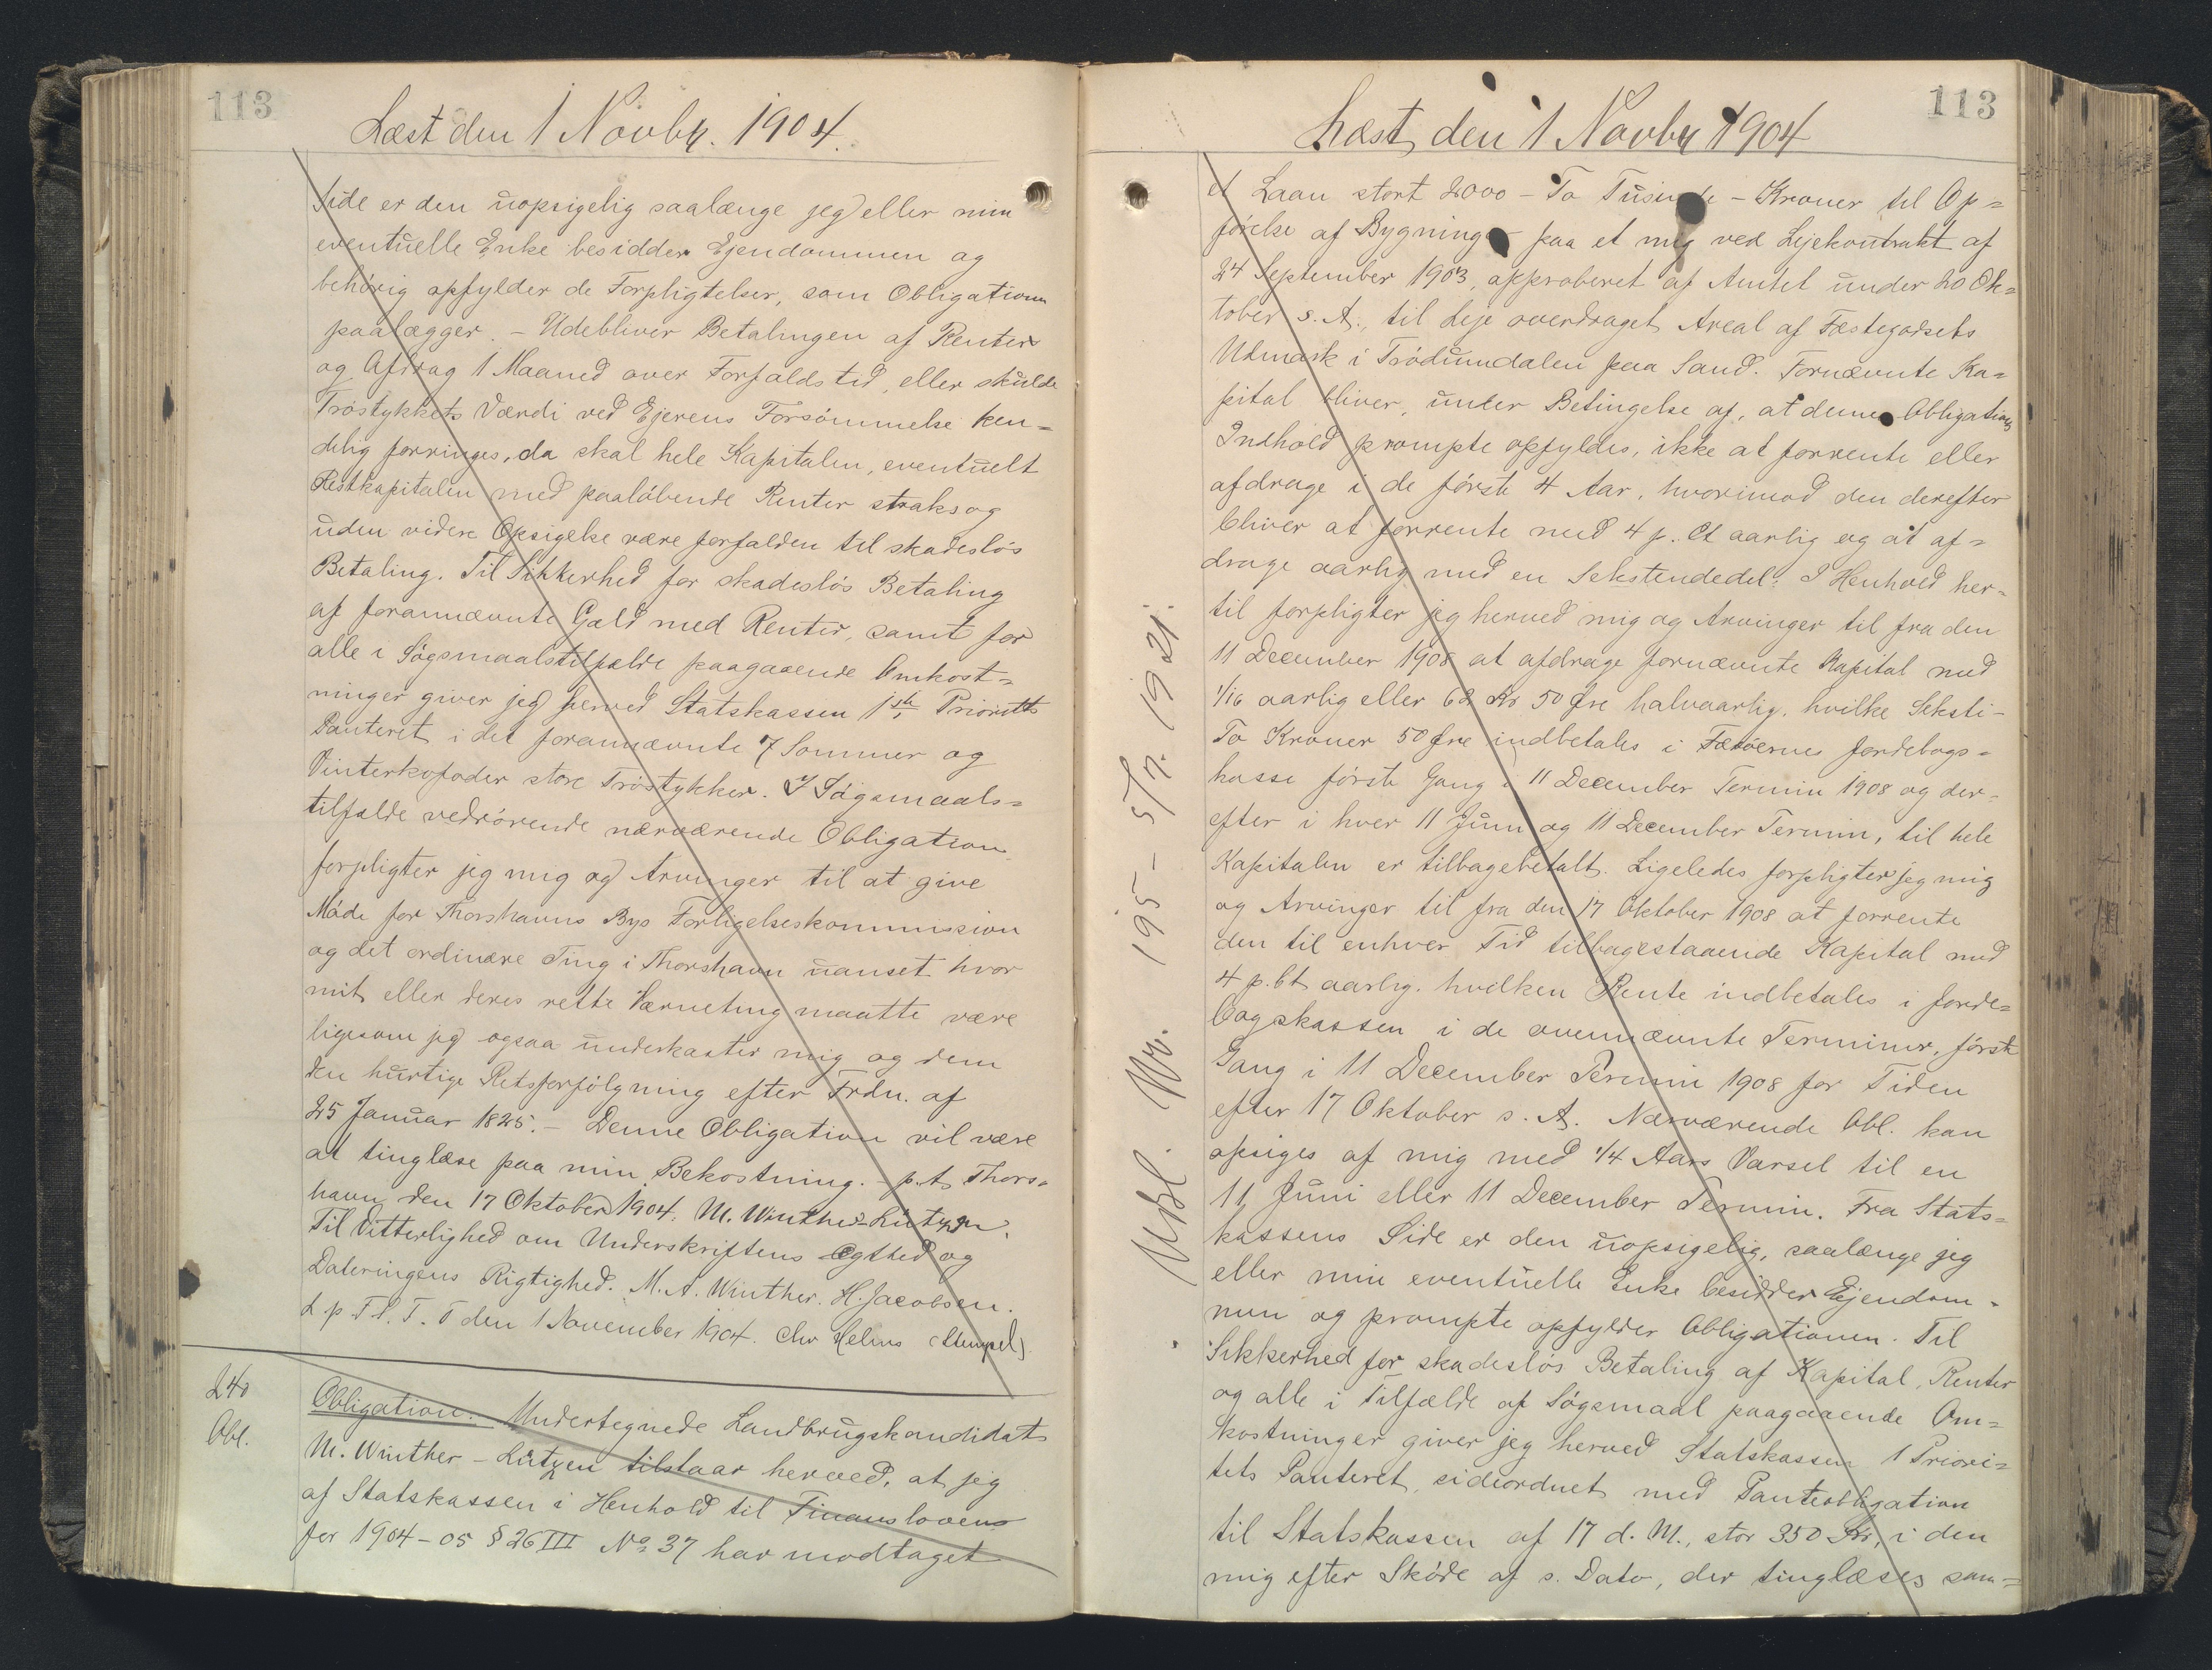 113
Læst den 1 Novbr. 1904.
Side er den uopsigelig saalænge jeg eller min
eventuelle Enke besidder Ejendommen og
behørig opfylder de Forpligtelser, som Obligationen
paalægger. – Udebliver Betalingen af Renter
og Afdrag 1 Maaned over Forfaldstid, eller skulde
Trøstykkets Værdi ved Ejerens Forsømmelse ken=
delig forringes, da skal hele Kapitalen, eventuelt
Restkapitalen med paaløbende Renter straks og
uden videre Opsigelse være forfalden til skadesløs
Betaling. Til Sikkerhed for skadesløs Betaling
af forannævnte Gæld med Renter, samt for
alle i Søgsmaalstilfælde paagaaende Omkost=
ninger giver jeg herved Statskassen 1ste Prioritets
Panteret i det forannævnte 7 Sommer og
Vinterkofoder store Trøstykker. I Søgsmaals=
tilfælde vedrørende nærværende Obligation
forpligter jeg mig og Arvinger til at give
Møde for Thorshavns Bys Forligelseskommission
og det ordinære Ting i Thorshavn uanset hvor
mit eller deres rette Værneting maatte være
ligesom jeg ogsaa underkaster mig og dem
den hurtige Retsforfølgning efter Frdn. af
25 Januar 1825. – Denne Obligation vil være
at tinglæse paa min Bekostning. – p.t. Thors=
havn, den 17 Oktober 1904. M. Winther-Lützen.
Til Vitterlighed om Underskriftens Ægthed og
Dateringens Rigtighed. M. A. Winther. H. Jacobsen.
L p T. S. T. O den 1 November 1904. Chr Helms (Stempel).
240
Obl.
Obligation. Undertegnede Landbrugskandidat
M. Winther – Lützen tilstaar herved, at jeg
af Statskassen i Henhold til Finanslovens
for 1904–05 § 26 III No 37 har modtaget
113
Læst den 1 Novbr 1904
et Laan stort 2000 – To Tusinde – Kroner til Op=
førelse af Bygninger paa et mig ved Lejekontrakt af
24 September 1903, approberet af Amtet under 20 Ok=
tober s. A., til Leje overdraget Areal af Fæstegodsets
Udmark i Trødumdalen paa Sand. Fornævnte Ka=
pital bliver, under Betingelse af, at denne Obligations
Indhold prompte opfyldes, ikke at forrente eller
afdrage i de første 4 Aar, hvorimod den derefter
bliver at forrente med 4 p. Ct aarlig og at af=
drage aarlig med en Sekstendedel. I Henhold her=
til forpligter jeg herved mig og Arvinger til fra den
11 December 1908 at afdrage fornævnte Kapital med
1/16 aarlig eller 62 Kr 50 Øre halvaarlig, hvilke Seksti-
To Kroner 50 Øre indbetales i Færøernes Jordebogs=
kasse første Gang i 11 December Termin 1908 og der-
efter i hver 11 Juni og 11 December Termin, til hele
Kapitalen er tilbagebetalt. Ligeledes forpligter jeg mig
og Arvinger til fra den 17 Oktober 1908 at forrente
den til enhver Tid tilbagestaaende Kapital med
4 p. Ct aarlig, hvilken Rente indbetales i Jorde=
bogskassen i de ovennævnte Terminer, første
Gang i 11 December Termin 1908 for Tiden
efter 17 Oktober s. A. Nærværende Obl. kan
opsiges af mig med 1/4 Aars Varsel til en
11 Juni eller 11 December Termin. Fra Stats=
kassens Side er den uopsigelig, saalænge jeg
eller min eventuelle Enke besidder Ejendom-
men og prompte opfylder Obligationen. Til
Sikkerhed for skadesløs Betaling af Kapital, Renter
og alle i Tilfælde af Søgsmaal paagaaende Om=
kostninger giver jeg herved Statskassen 1 Priori=
tets Panteret, sideordnet med Panteobligation
til Statskassen af 17 d. M., stor 350 Kr, i den
mig efter Skøde af s. Dato, der tinglæses sam=
Udsl. Nr. 195 – 5/7. 1921.